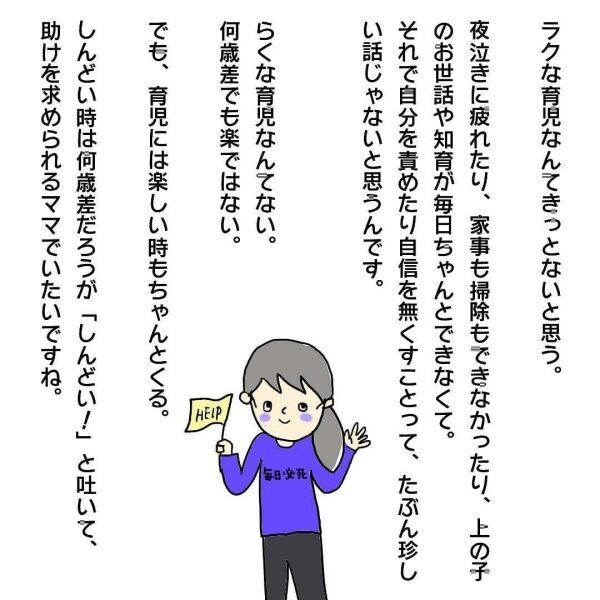 ラクな育児なんてきっとないと思う。
夜泣きに疲れたり、家事も掃除もできなかったり、上の子
のお世話や知育が毎日ちゃんとできなくて。
それで自分を責めたり自信を無くすことって、たぶん珍し
い話じゃないと思うんです。
らくな育児なんてない。
何歳差でも楽ではない。
でも、育児には楽しい時もちゃんとくる。
しんどい時は何歳差だろうが「しんどい！」と吐いて、
助けを求められるママでいたいですね。
HELP
毎日必死